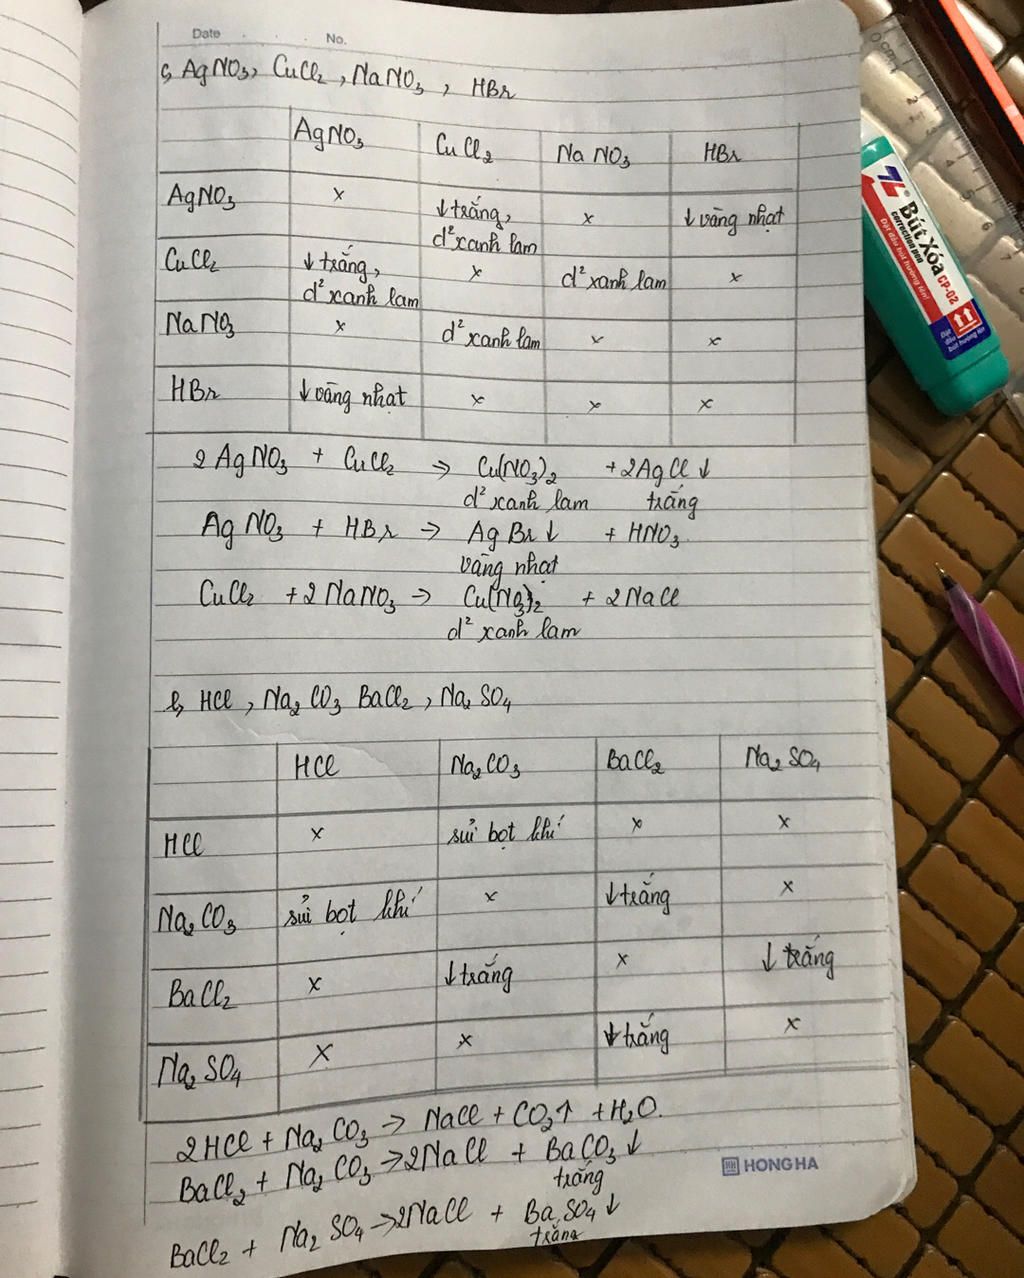 Date . . . No.
c, AgNO₃, CuCl₂, NaNO₃, HBr
AgNO₃ CuCl₂ NaNO₃ HBr
AgNO₃ x ↓trắng, d² xanh lam x ↓ vàng nhạt
CuCl₂ ↓ trắng, d² xanh lam x d² xanh lam x
NaNO₃ x d² xanh lam x x
HBr ↓ vàng nhạt x x x
2AgNO₃ + CuCl₂ → Cu(NO₃)₂ + 2AgCl ↓
d² xanh lam trắng
AgNO₃ + HBr → AgBr↓ + HNO₃.
vàng nhạt
CuCl₂ + 2NaNO₃ → Cu(NO₃)₂ + 2NaCl
d² xanh lam
b, HCl, Na₂CO₃ BaCl₂, Na₂SO₄
HCl Na₂CO₃ BaCl₂ Na₂SO₄
HCl x sủi bọt khí x x
Na₂CO₃ sủi bọt khí x ↓trắng x
BaCl₂ x ↓trắng x ↓ trắng
Na₂SO₄ x x ↓trắng x
2HCl + Na₂CO₃ → NaCl + CO₂↑ + H₂O.
BaCl₂ + Na₂CO₃ → 2NaCl + BaCO₃↓
trắng
BaCl₂ + Na₂SO₄ → 2NaCl + BaSO₄↓
trắng
HONG HA
Bút Xóa CP-02
correction pen
Đặt đầu bút hướng lên!
Đặt đầu bút hướng lên
0cm 2 3 4 5 6 7